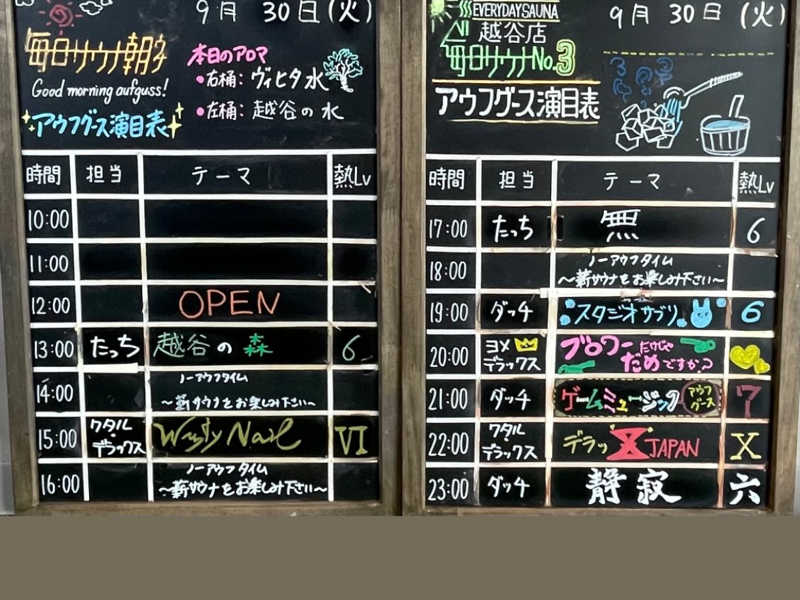 9月 30日(火)
毎日サウナ朝子
Good morning aufguss!
アウフグース演目表
本日のアロマ
●右桶: ヴィヒタ水
●左桶: 越谷の水
時間 担当 テーマ 熱Lv
10:00
11:00
12:00 OPEN
13:00 たっち 越谷の森 6
14:00 ノーアウフタイム
～薪サウナをお楽しみ下さい～
15:00 ワタル・デラックス Wudy Nail VI
16:00 ノーアウフタイム
～薪サウナをお楽しみ下さい～
EVERYDAYSAUNA 9月 30日(火)
越谷店
毎日サウナNo.3
アウフグース演目表
時間 担当 テーマ 熱Lv
17:00 たっち 無 6
18:00 ノーアウフタイム
～薪サウナをお楽しみ下さい～
19:00 ダッチ スタジオサブリ 6
20:00 ヨメデラックス ブロワーだけじゃだめですか?
21:00 ダッチ ゲームミュージックアウフグース 7
22:00 ワタル・デラックス デラッX JAPAN X
23:00 ダッチ 静寂 六